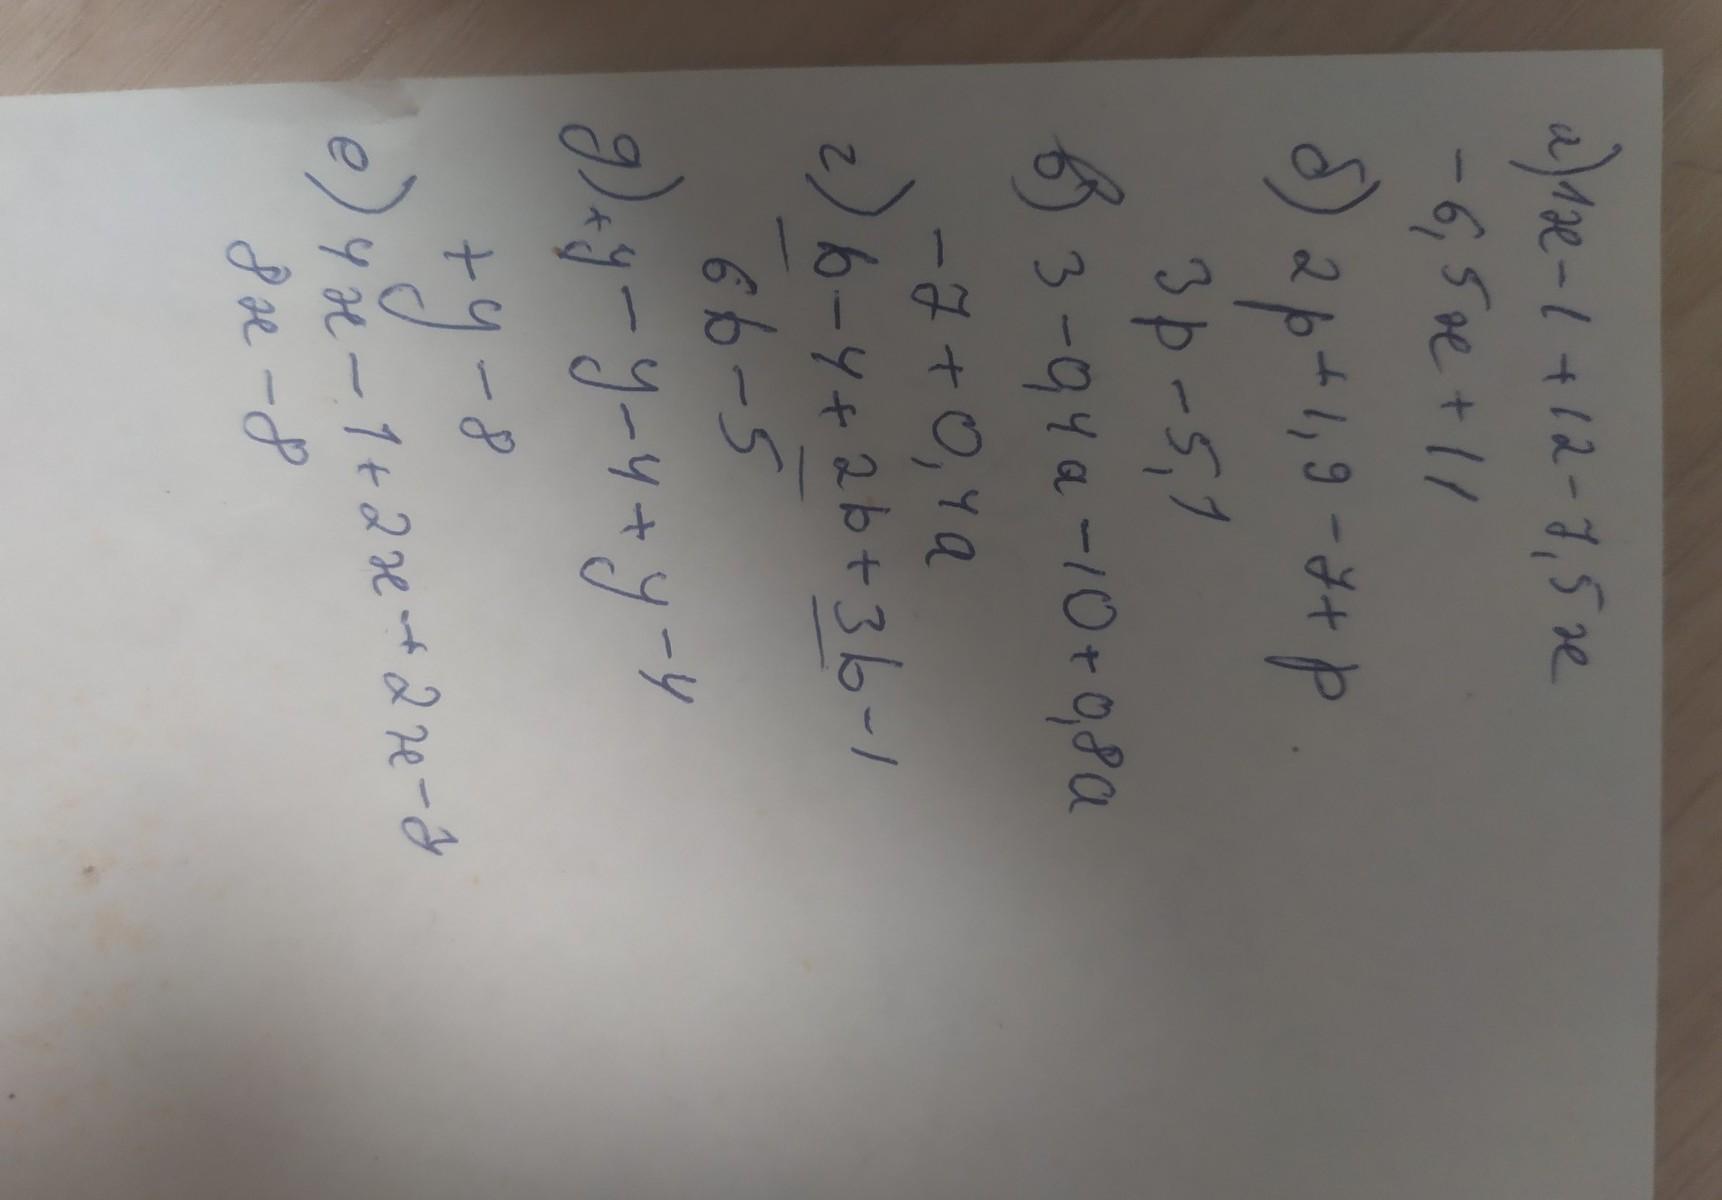 а) 1x - 1 + 12 - 7,5x
- 6,5x + 11
б) 2p + 1,9 - 7 + p
3p - 5,1
в) 3 - 0,4a - 10 + 0,8a
- 7 + 0,4a
г) b - 4 + 2b + 3b - 1
6b - 5
д) + y - y - 4 + y - 4
+ y - 8
е) 4x - 1 + 2x + 2x - 7
8x - 8